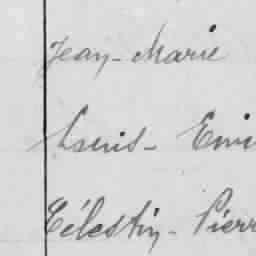 Jean-Marie
Louis-
Célestin-Pierr